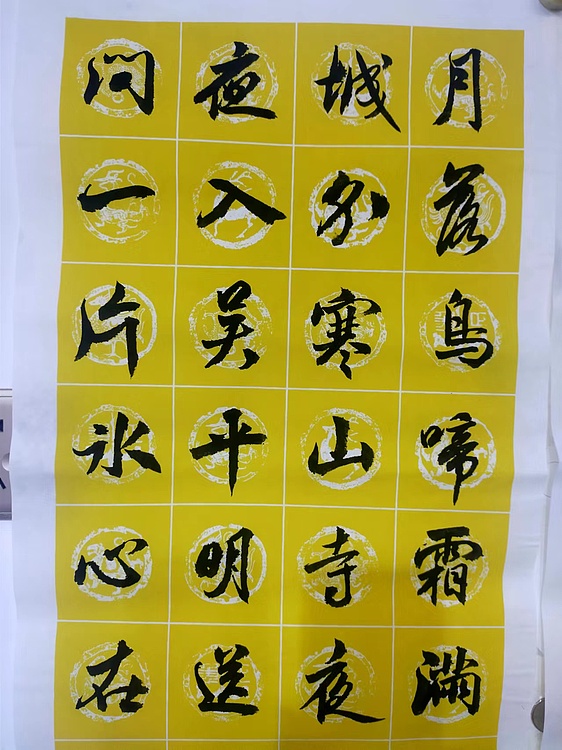 月落鳥啼霜滿
城外寒山寺夜
夜入吳平明送
問一片冰心在